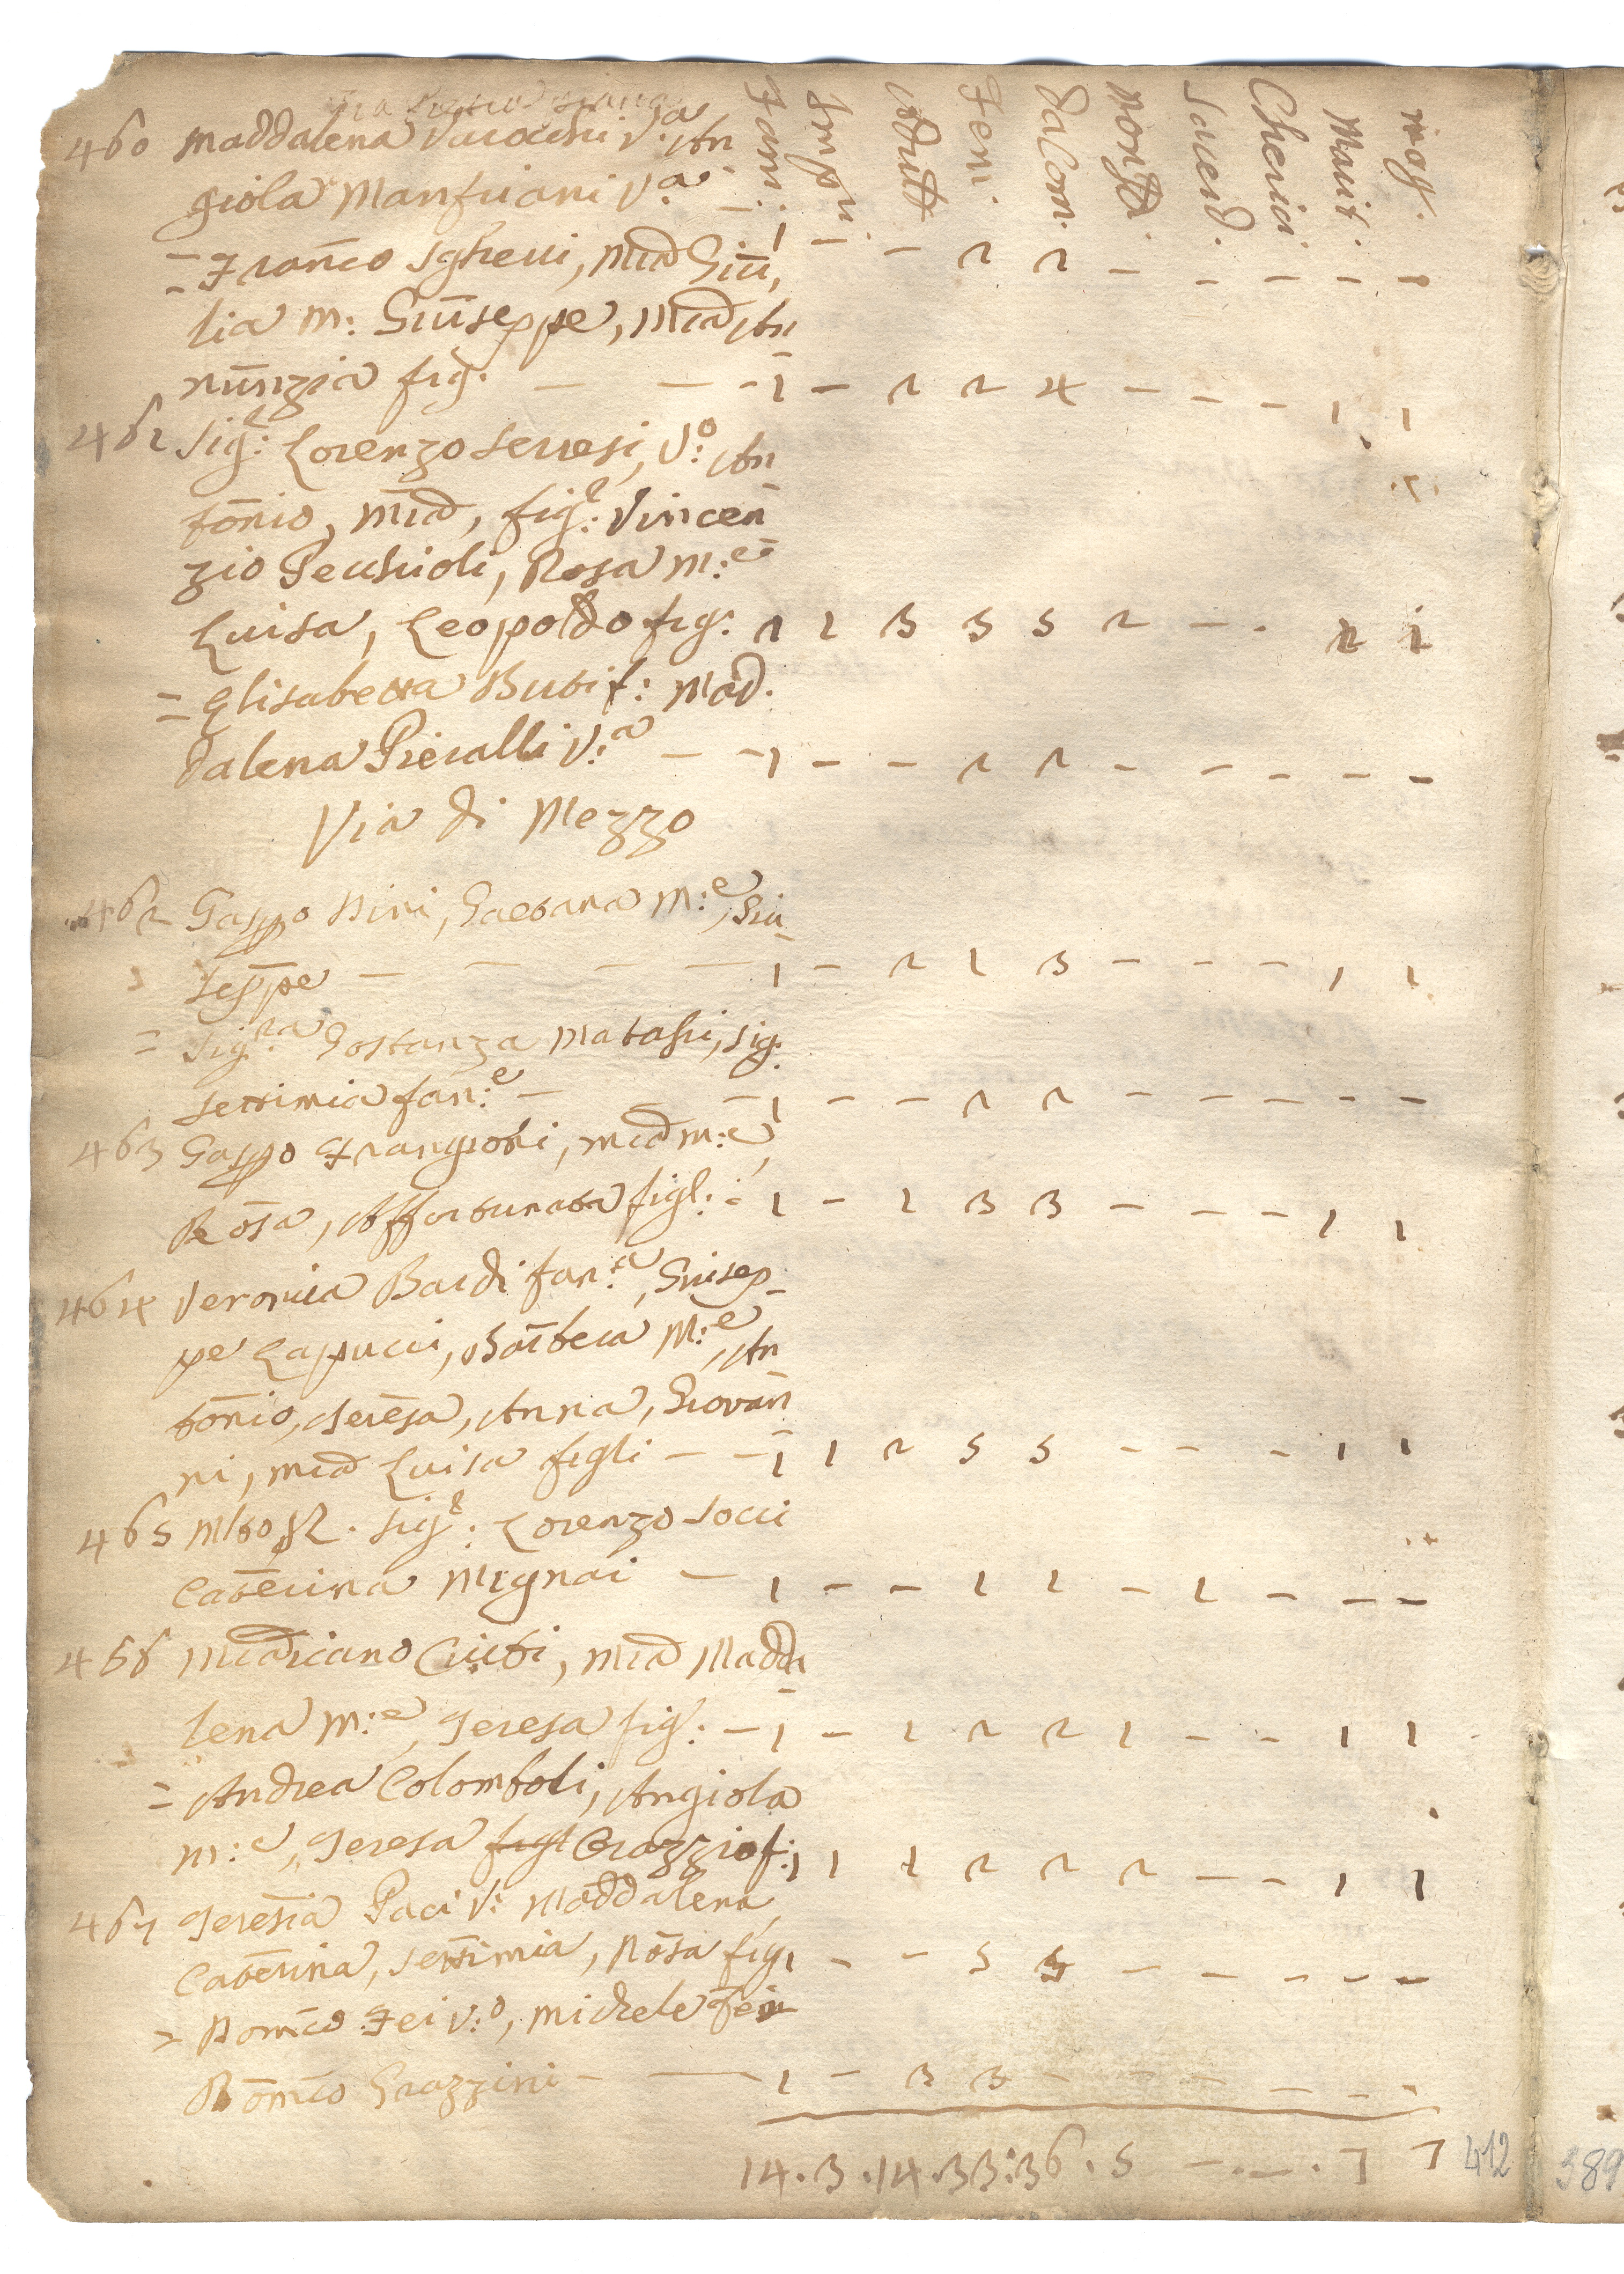 Fam: Impu. Adulti Fem. Da Com. Non Sacerd. Cherici Marit. mog.
460 Maddalena V:a An
giola Manfriani V:a - 1 - - 2 2 - - - - -
= Franco Sgherri, Mia Giu,
lia m: Giuseppe, Mia An
nunzia fig. - - - 1 - 2 2 4 - - - 1 1
461 Sig:e Lorenzo Serresi, V:o An
tonio, Mia, fig:e Vincen
zio Pecchioli, Rosa M:e
Luisa, Leopoldo fig: 1 1 3 3 5 2 - . 1 1
= Elisabetta Buti f: Mad.
dalena Pieralli V:a - - 1 - - 2 2 - - - - -
Via di Mezzo
462 Gasppo Nini, Gaetana M:e, Giu
seppe - - - - 1 - 2 1 3 - - - 1 1
= Sig:ra Gostanza Matassi, Sig.
Settimia fan:e - - 1 - - 2 2 - - - - -
463 Gasppo Frangioni, mia m:e,
Rosa, Affortunata figl: - 1 - 1 3 3 - - - 1 1
464 Veronica Bardi fan:a, Giusep-
pe Cappucci, Barbera M:e, An
tonio, Teresa, Anna, Giovan
ni, mia Luisa figli - - 1 1 2 5 5 - - - 1 1
465 Mto R. Sig:e Lorenzo Socci
Caterina Mignai - 1 - - 1 1 - 1 - - -
466 Mariano Ciuti, Mia Madda
lena M:e, Teresa fig: - 1 - 1 2 2 1 - - 1 1
= Andrea Colomboli, Angiola
m:e, Teresa figl Orazzio f: 1 1 1 2 2 2 - - 1 1
467 Teresia Paci V: Maddalena,
Caterina, Settimia, Rosa fig 1 - - 5 5 - - - - -
= Domco Fei V:o, Michele Fei
Domco Grazzini - - 1 - 3 3 - - - - - -
14 . 3 . 14 . 33 : 36 . 5 - . - . 7 7 412
389